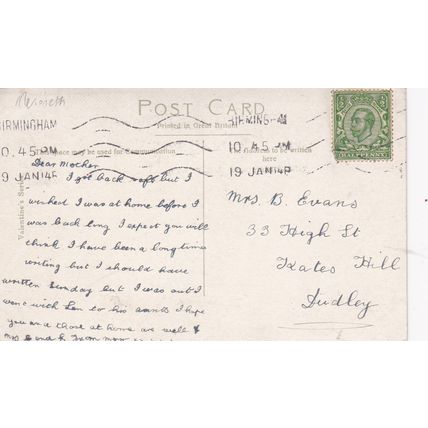 POST CARD
Printed in Great Britain
BIRMINGHAM
10. 45 PM
19 JAN 14
BIRMINGHAM
10. 45 PM
19 JAN 14
space may be used for Communication
The Address to be written
here
Valentine's Series
HALFPENNY
Dear Mother
I got back safe but I
wished I was at home before I
was back long I expect you will
think I have been a long time
writing but I should have
written Sunday but I was out I
went with Len to his aunts I hope
you and those at home are well &
Mrs B. Evans
33 High St
Kates Hill
Dudley